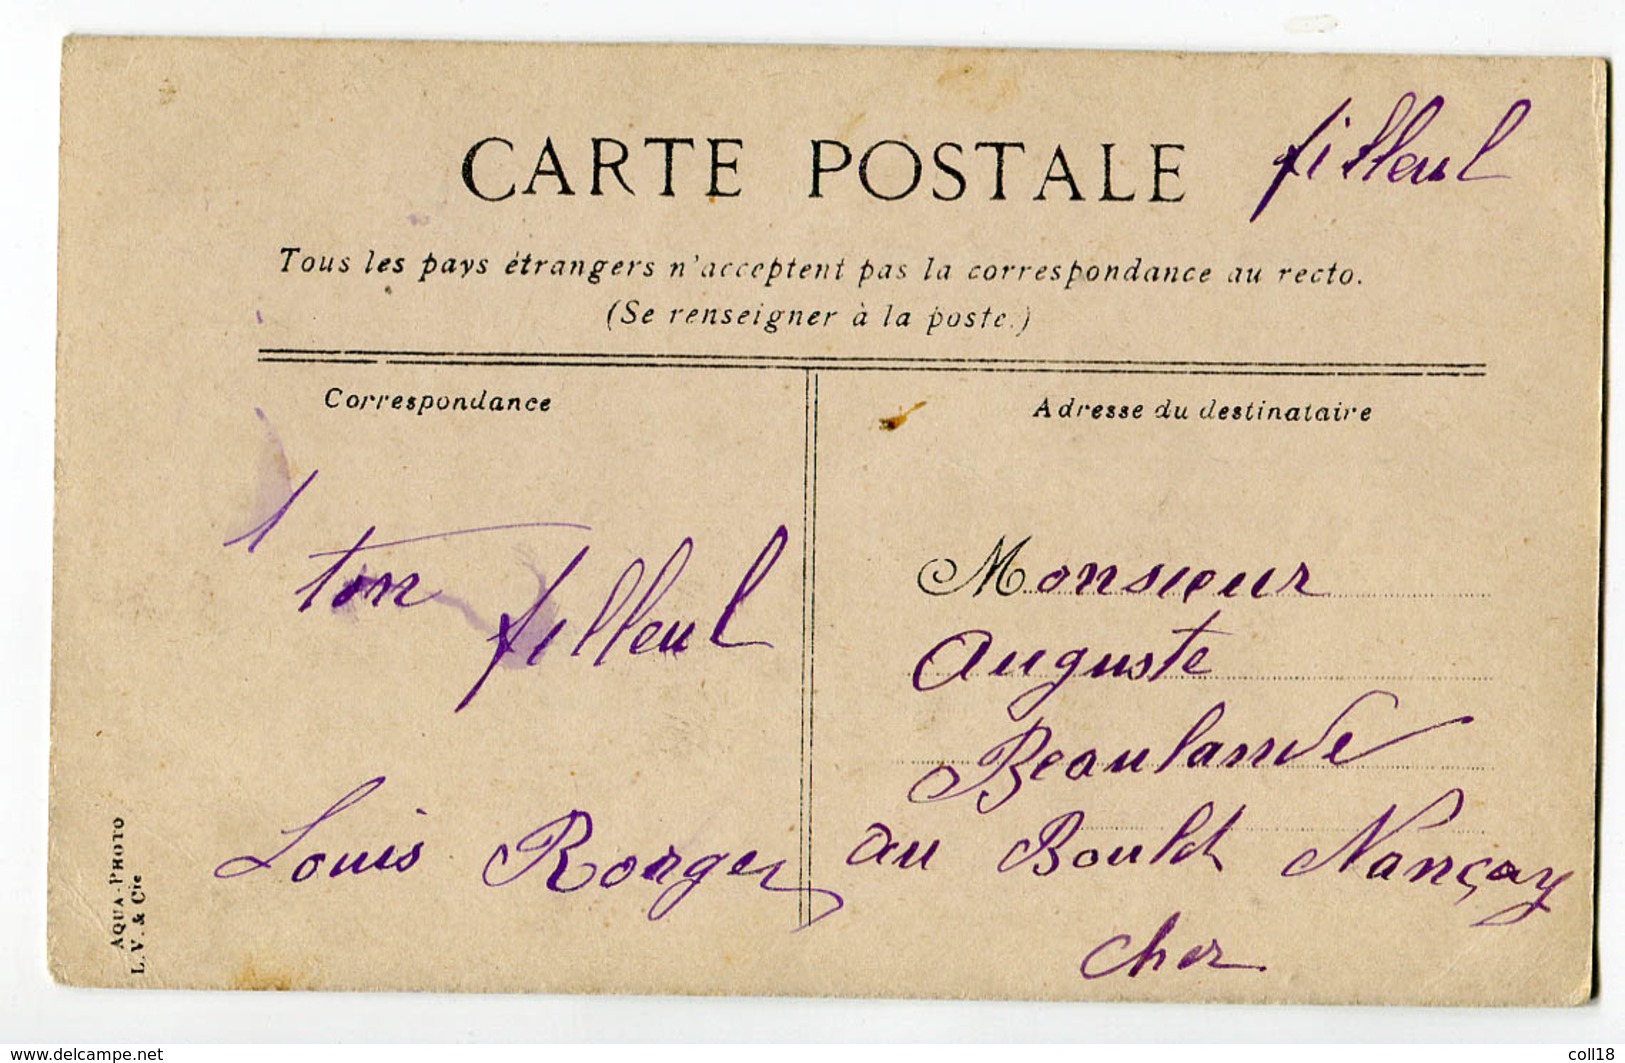 CARTE POSTALE
filleul
Tous les pays étrangers n'acceptent pas la correspondance au recto.
(Se renseigner à la poste.)
Correspondance
Adresse du destinataire
ton
filleul
Louis
Monsieur
Auguste
Beaulande
au Nançay
Cher
AQUA-PHOTO
L.V. & Cie
www.delcampe.net
coll18